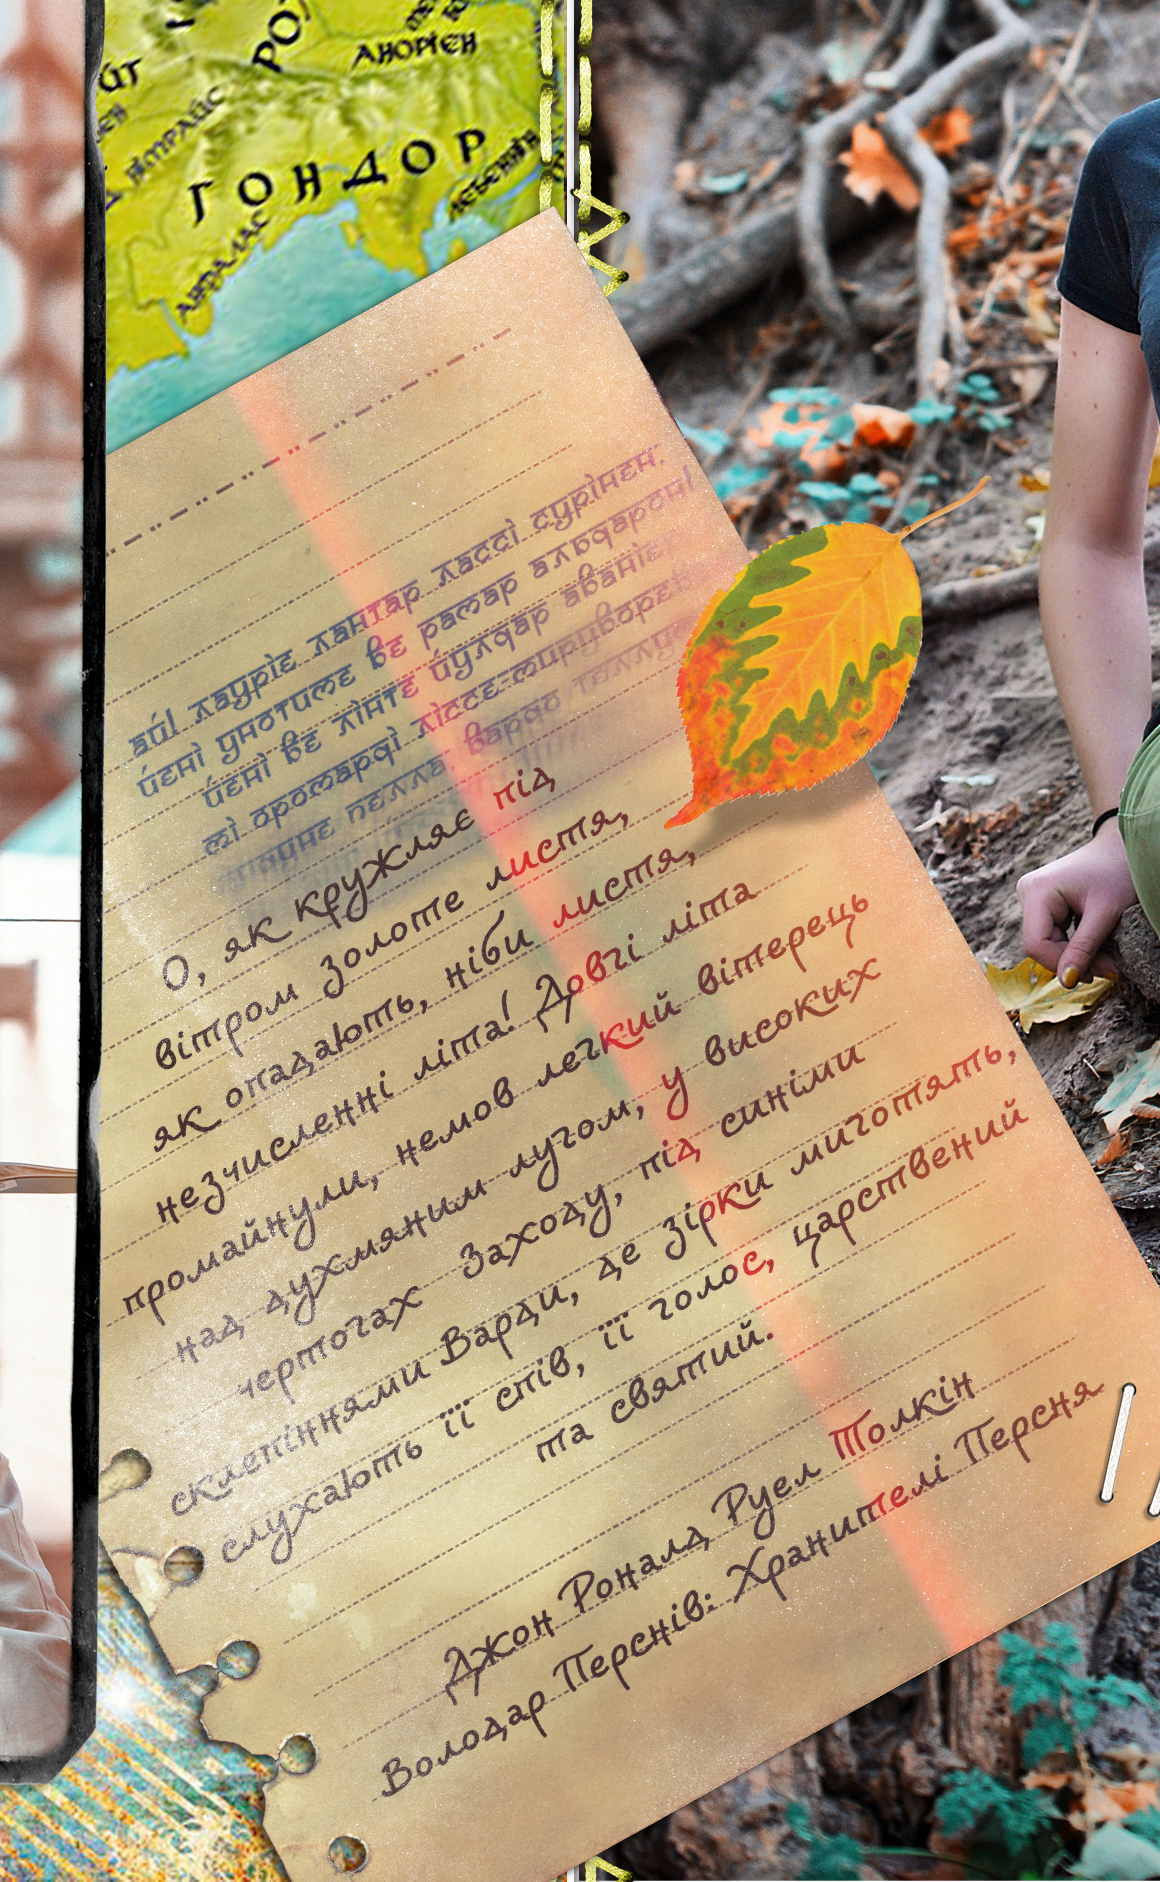 РО
АНОРІЄН
НІМРАЙС
ГОНДОР
АНФАЛАС
ай! лауріє лантар лассі сурінен:
йєні унотиме ве рамар альдарон!
йєні ве лінте йулдар аваніе
мі оромарді ліссе-мируворе
вардо теллу
О, як кружляє під
вітром золоте листя,
як опадають, ніби листя,
незчисленні літа! Довгі літа
промайнули, немов легкий вітерець
над духмяним лугом, у високих
чертогах Заходу, під синіми
склепіннями Варди, де зірки миготять,
слухають її спів, її голос, царствений
та святий.
Джон Роналд Руел Толкін
Володар Перснів: Хранителі Персня